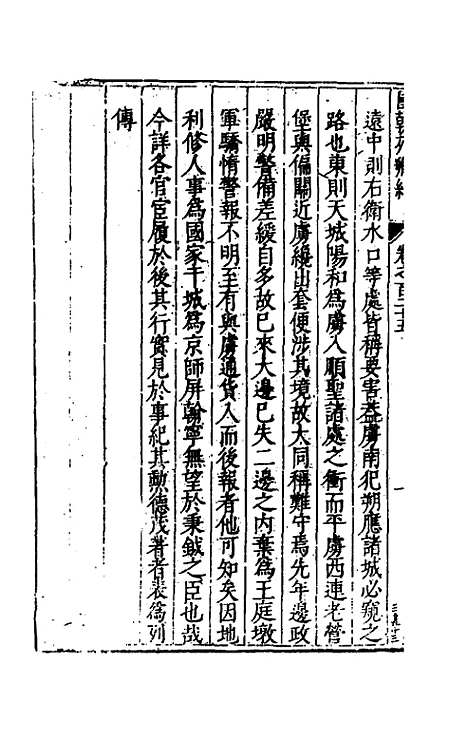 國朝列卿紀 卷之百二十五 一
遠中則右衛水口等處皆稱要害蓋虜南犯朔應諸城必窺之
路也東則天城陽和為虜入順聖諸處之衝而平虜西連老營
堡與偏關近虜纔出套便涉其境故大同稱難守焉先年邊政
嚴明警備差緩自多故已來大邊已失二邊之內棄為王庭墩
軍驕惰警報不明至有與虜通貨入而後報者他可知矣因地
利修人事為國家干城為京師屏翰寧無望於秉鉞之臣也哉
今詳各官宦履於後其行實見於事紀其勳德茂著者表為列
傳